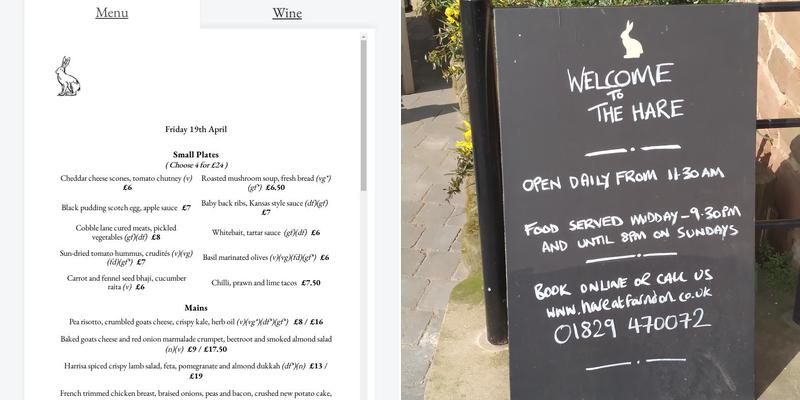 Menu
Wine
Friday 19th April
Small Plates
( Choose 4 for £24 )
Cheddar cheese scones, tomato chutney (v)
£6
Roasted mushroom soup, fresh bread (vg*)
(gf*) £6.50
Black pudding scotch egg, apple sauce £7
Baby back ribs, Kansas style sauce (df)(gf)
£7
Cobble lane cured meats, pickled
vegetables (gf)(df) £8
Whitebait, tartar sauce (gf)(df) £6
Sun-dried tomato hummus, crudités (v)(vg)
(fd)(gf*) £7
Basil marinated olives (v)(vg)(fd)(gf*) £6
Carrot and fennel seed bhaji, cucumber
raita (v) £6
Chilli, prawn and lime tacos £7.50
Mains
Pea risotto, crumbled goats cheese, crispy kale, herb oil (v)(vg*)(df*)(gf*) £8 / £16
Baked goats cheese and red onion marmalade crumpet, beetroot and smoked almond salad
(n)(v) £9 / £17.50
Harrisa spiced crispy lamb salad, feta, pomegranate and almond dukkah (df*)(n) £13 /
£19
French trimmed chicken breast, braised onions, peas and bacon, crushed new potato cake,
WELCOME
TO
THE HARE
OPEN DAILY FROM 11.30AM
FOOD SERVED MIDDAY-9.30PM
AND UNTIL 8PM ON SUNDAYS
BOOK ONLINE OR CALL US
www.hareatfarndon.co.uk
01829 470072